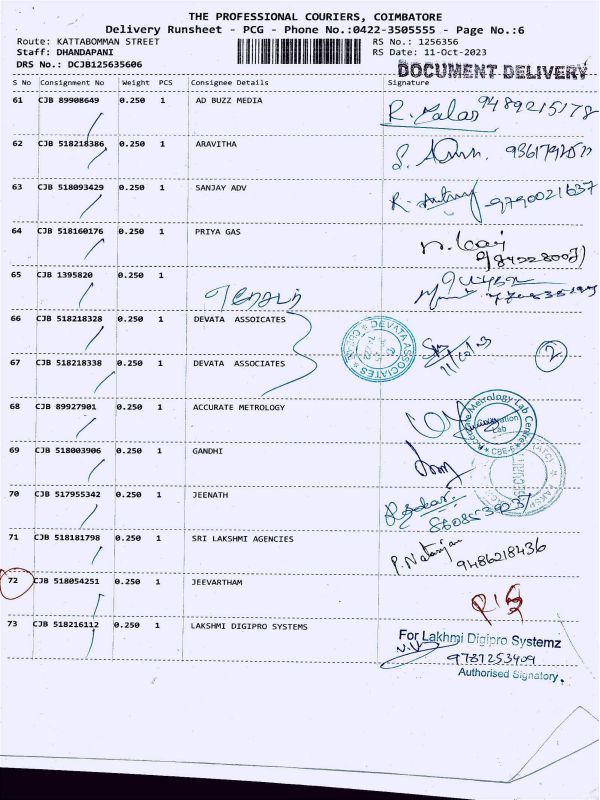 THE PROFESSIONAL COURIERS, COIMBATORE
Delivery Runsheet - PCG - Phone No.:0422-3505555 - Page No.:6
Route: KATTABOMMAN STREET RS No.: 1256356
Staff: DHANDAPANI RS Date: 11-Oct-2023
DRS No.: DCJB125635606 DOCUMENT DELIVERY
S No Consignment No Weight PCS Consignee Details Signature
61 CJB 89908649 0.250 1 AD BUZZ MEDIA 9489215178
62 CJB 518218386 0.250 1 ARAVITHA
63 CJB 518093429 0.250 1 SANJAY ADV 9790021637
64 CJB 518160176 0.250 1 PRIYA GAS
65 CJB 1395820 0.250 1
66 CJB 518218328 0.250 1 DEVATA ASSOICATES DEVATA ASSOCIATES 11/10/23 2
67 CJB 518218338 0.250 1 DEVATA ASSOCIATES
68 CJB 89927901 0.250 1 ACCURATE METROLOGY Accurate Metrology Lab Centre
69 CJB 518003906 0.250 1 GANDHI SECURITY
70 CJB 517955342 0.250 1 JEENATH
71 CJB 518181798 0.250 1 SRI LAKSHMI AGENCIES P. Natarajan 9486218436
72 CJB 518054251 0.250 1 JEEVARTHAM
73 CJB 518216112 0.250 1 LAKSHMI DIGIPRO SYSTEMS For Lakhmi Digipro Systemz
9787253409
Authorised Signatory.